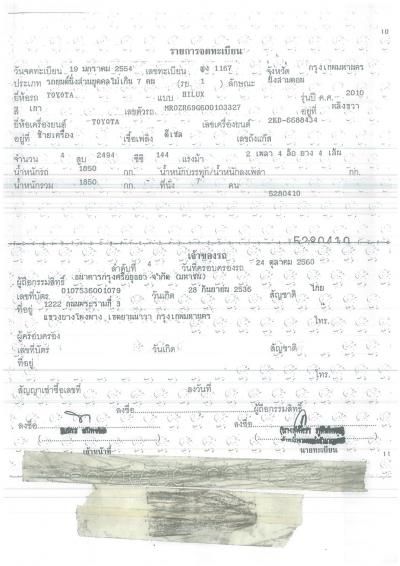 10
รายการจดทะเบียน
วันจดทะเบียน 19 มกราคม 2554 เลขทะเบียน ฆฐ 1167 จังหวัด กรุงเทพมหานคร
ประเภท รถยนต์นั่งส่วนบุคคลไม่เกิน 7 คน (รย. 1 ) ลักษณะ นั่งสามตอน
ยี่ห้อรถ TOYOTA แบบ HILUX รุ่นปี ค.ศ. 2010
สี เทา เลขตัวรถ MR0ZR69G600103327 อยู่ที่
ยี่ห้อเครื่องยนต์ TOYOTA เลขเครื่องยนต์ 2KD-6688434
อยู่ที่ ซ้ายเครื่อง เชื้อเพลิง ดีเซล เลขถังแก๊ส
จำนวน 4 สูบ 2494 ซีซี 144 แรงม้า 2 เพลา 4 ล้อ ยาง 4 เส้น
น้ำหนักรถ 1850 กก. น้ำหนักบรรทุก/น้ำหนักลงเพลา กก.
น้ำหนักรวม 1850 กก. ที่นั่ง 7 คน
5280410
5280410
เจ้าของรถ
ลำดับที่ 4 วันที่ครอบครองรถ 24 ตุลาคม 2560
ผู้ถือกรรมสิทธิ์ ธนาคารกรุงศรีอยุธยา จำกัด (มหาชน)
เลขที่บัตร 0107536001079 วันเกิด 28 กันยายน 2536 สัญชาติ ไทย
ที่อยู่ 1222 ถนนพระรามที่ 3
แขวงบางโพงพาง เขตยานนาวา กรุงเทพมหานคร โทร.
ผู้ครอบครอง
เลขที่บัตร วันเกิด สัญชาติ
ที่อยู่
โทร.
สัญญาเช่าซื้อเลขที่ ลงวันที่
ลงชื่อ ผู้ถือกรรมสิทธิ์
ลงชื่อ ลงชื่อ
เจ้าหน้าที่ นายทะเบียน
11